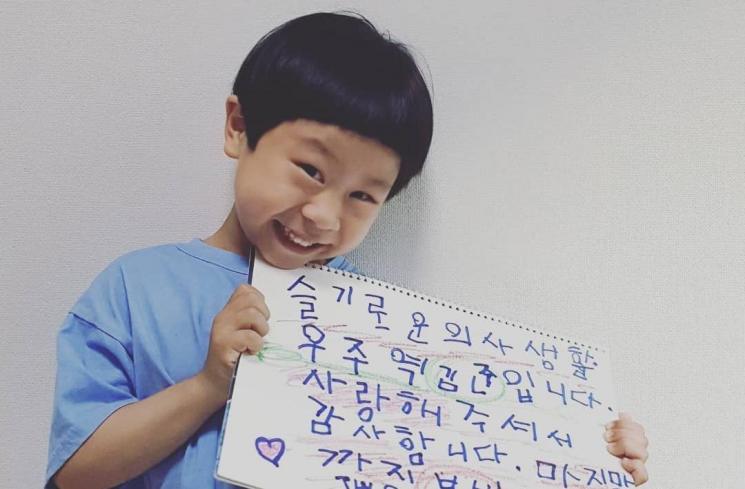 슬기로운의사생활
우주역김준입니다.
사랑해주셔서
감사합니다. 마지막
까지